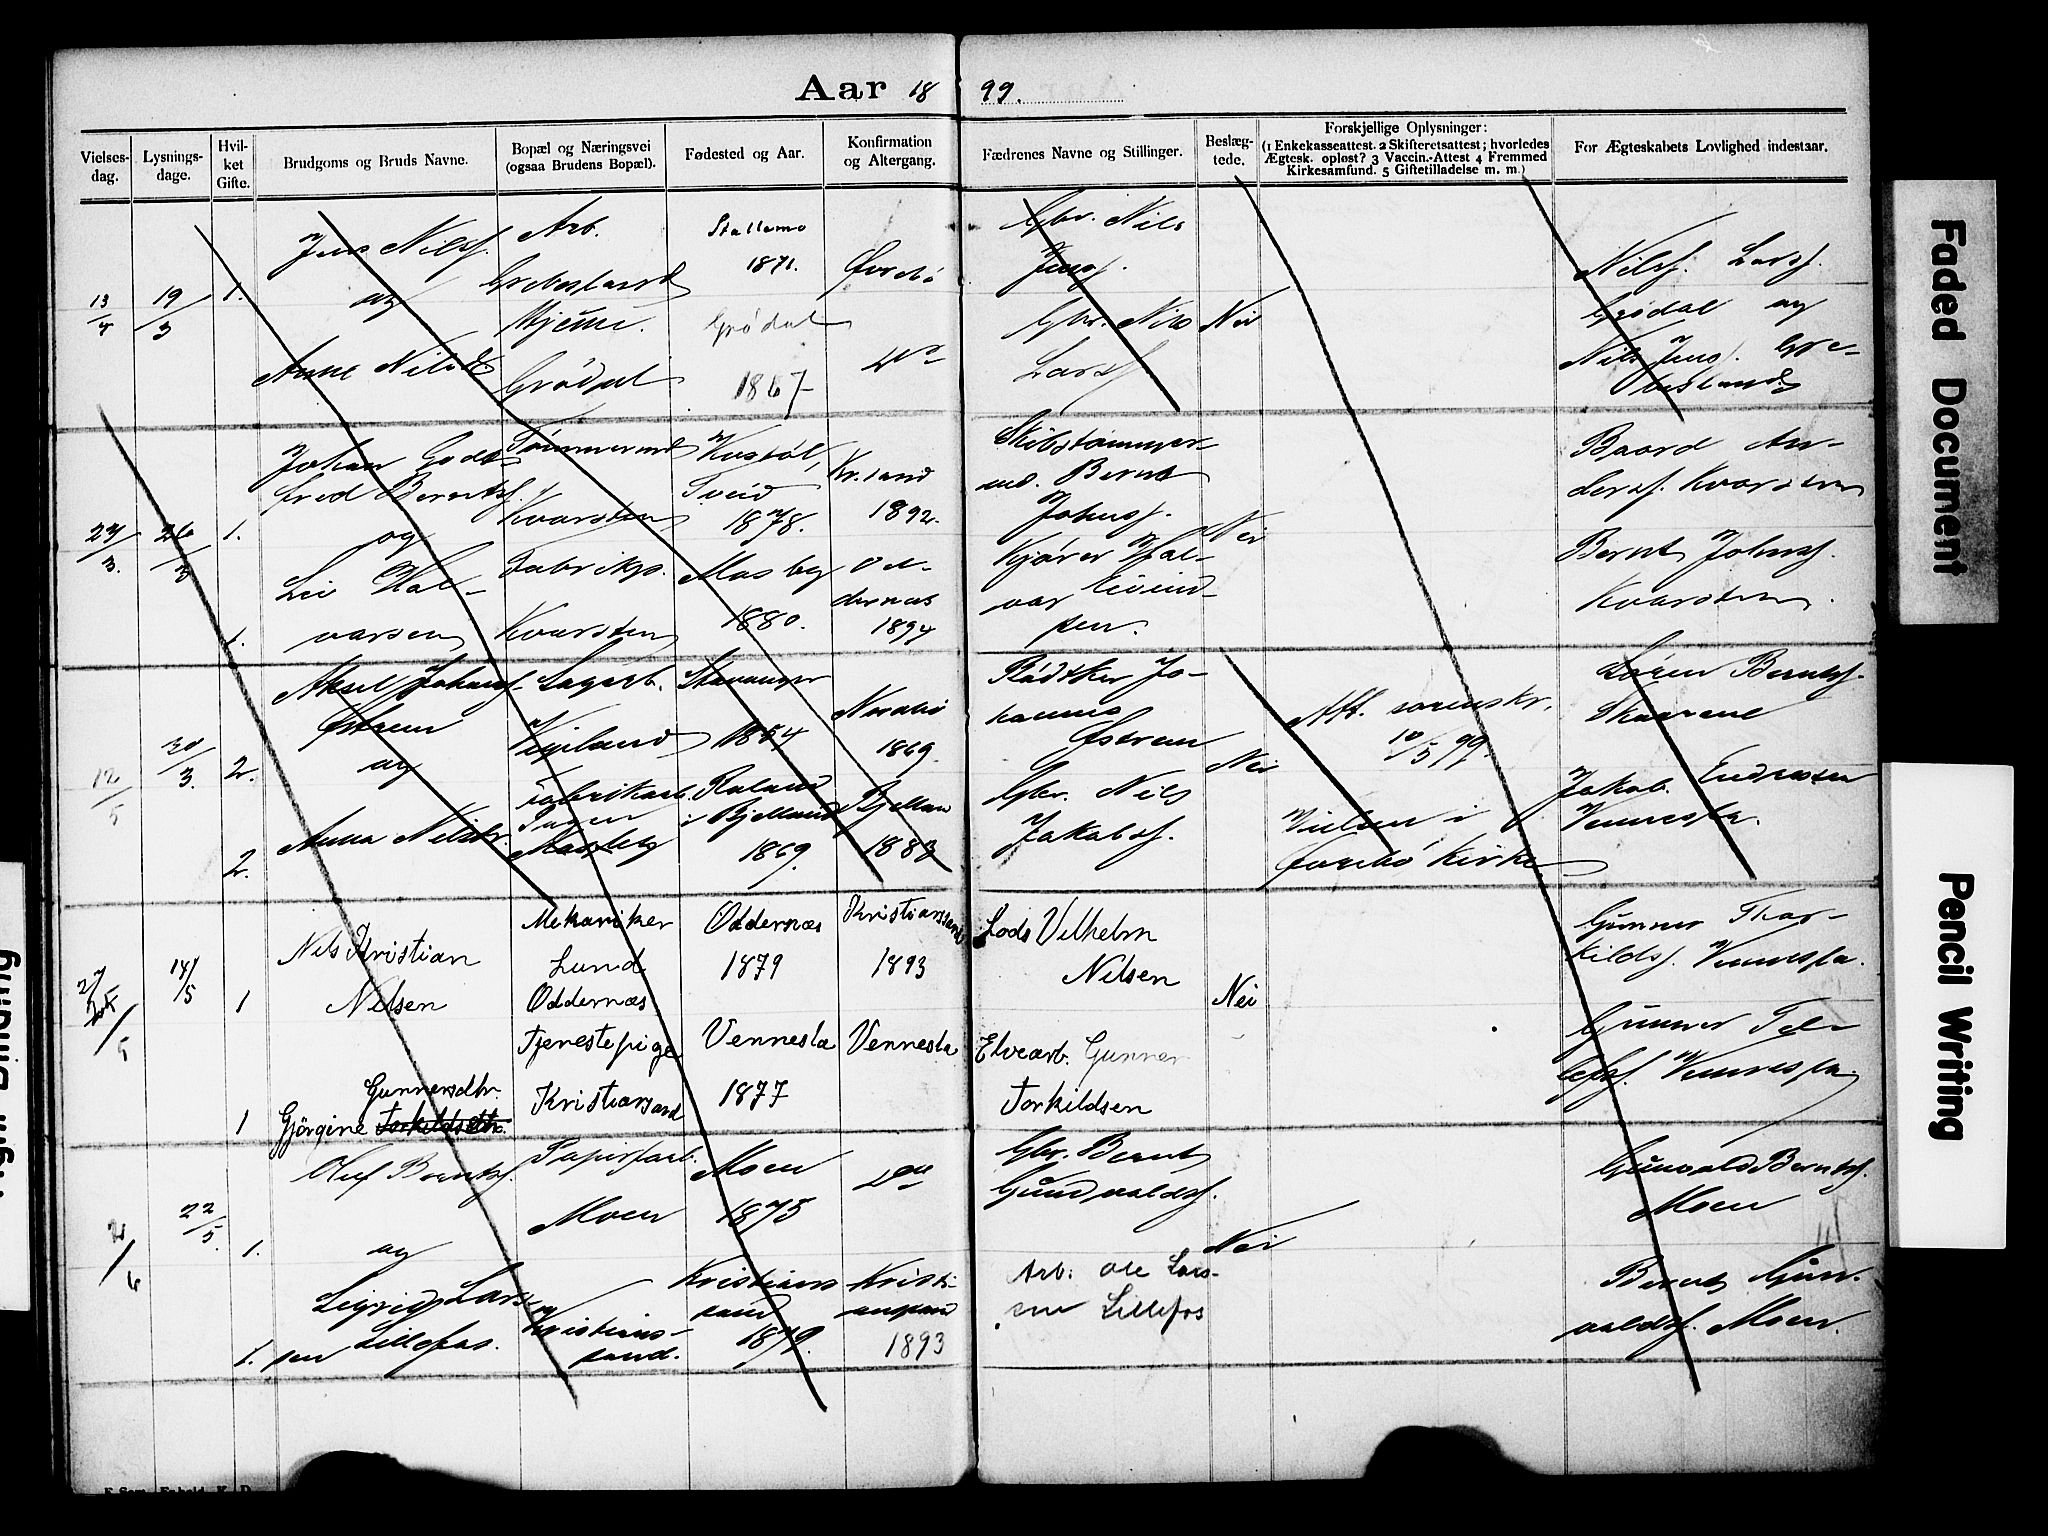 Aar 18 99.
Vielses-
dag.
Lysnings-
dage.
Hvil-
ket
Gifte.
Brudgoms og Bruds Navne.
Bopæl og Næringsvei
(ogsaa Brudens Bopæl).
Fødested og Aar.
Konfirmation
og Altergang.
Fædrenes Navne og Stillinger.
Beslæg-
tede.
Forskjellige Oplysninger:
(1 Enkekasseattest. 2 Skifteretsattest; hvorledes
Ægtesk. opløst? 3 Vaccin.-Attest 4 Fremmed
Kirkesamfund. 5 Giftetilladelse m. m.)
For Ægteskabets Lovlighed indestaar.
13/4
19/3
1.
Jens Nilsf.
og
Anne Nilsd.
Arb.
Grebesland
Hjeme.
Grödal
Stallemo
1871.
Grödal
1867
Do
Gbr. Nils
Jensf.
Gbr. Nils
Larsf
Nei
Nilsf. Larsf.
Grödal og
Nils Jensf. Gre-
besland
23/3.
26/3
1.
1.
Johan Godt-
fred Berntsf.
og
Liv Hal-
varsen
Tömmermd
Kvarsten
Fabrikp.
Kvarsten
Tveid
1878.
Mosby
1880.
Kr.sand
1892.
Od-
dernæs
1894
Skibstömmer-
md. Bernt
Johnsf.
Kjörer Hal-
var Eivind-
sen.
Nei
Baard An-
dersf. Kvarsten
Bernt Johnsf.
Kvarsten.
12/5
30/3
2.
2.
Aksel Johans
Östrem
og
Anna Nilsdr.
Sagarb.
Vigeland
Fabrikarb.
Mosby
Stavanger
1854
Roland
i Bjelland
1869.
1869.
Bjelland
1883
Rådtker Jo-
hannes
Östrem
Gbr. Nils
Jakobsf.
Nei
Att. sorenskr.
10/5 99.
Vielsen i
kirke
Sören Berntsf.
Skaarene
Jakob Endresen
Vennesla.
27/5
14/5
1
1
Nils Kristian
Nelsen
Gunnersdtr.
Gjörgine Torkildsdtr.
Mekaniker
Lund
Oddernæs
Tjenestepige
Kristiansand
Oddernæs
1879
Vennesla
1877
Kristianssand
1893
Vennesla
Lods Vilhelm
Nelsen
Elvearb. Gunner
Torkildsen
Nei
Gunner Thor-
kildsf. Vennesla.
Gunner Tel-
lefsf. Vennesla.
2/6
22/5.
1.
1.
Oluf Berntsf.
og
Sigrid Lars-
sen Lillefos.
Papirfarb.
Moen
Kristians-
sand.
Moen
1875
Kristians
sand
1879.
Do
Kristi-
ansand
1893
Gbr. Bernt
Gundvaldsf.
Arb: Ole Lars-
sen Lillefos
Nei
Gunvald Berntsf.
Moen
Bernt Gun-
valdsf. Moen.
Faded Document
Pencil Writing